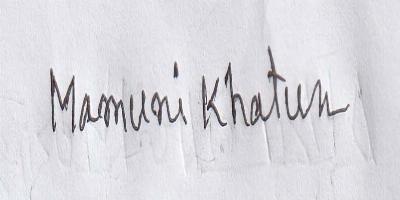 Mamuni Khatun